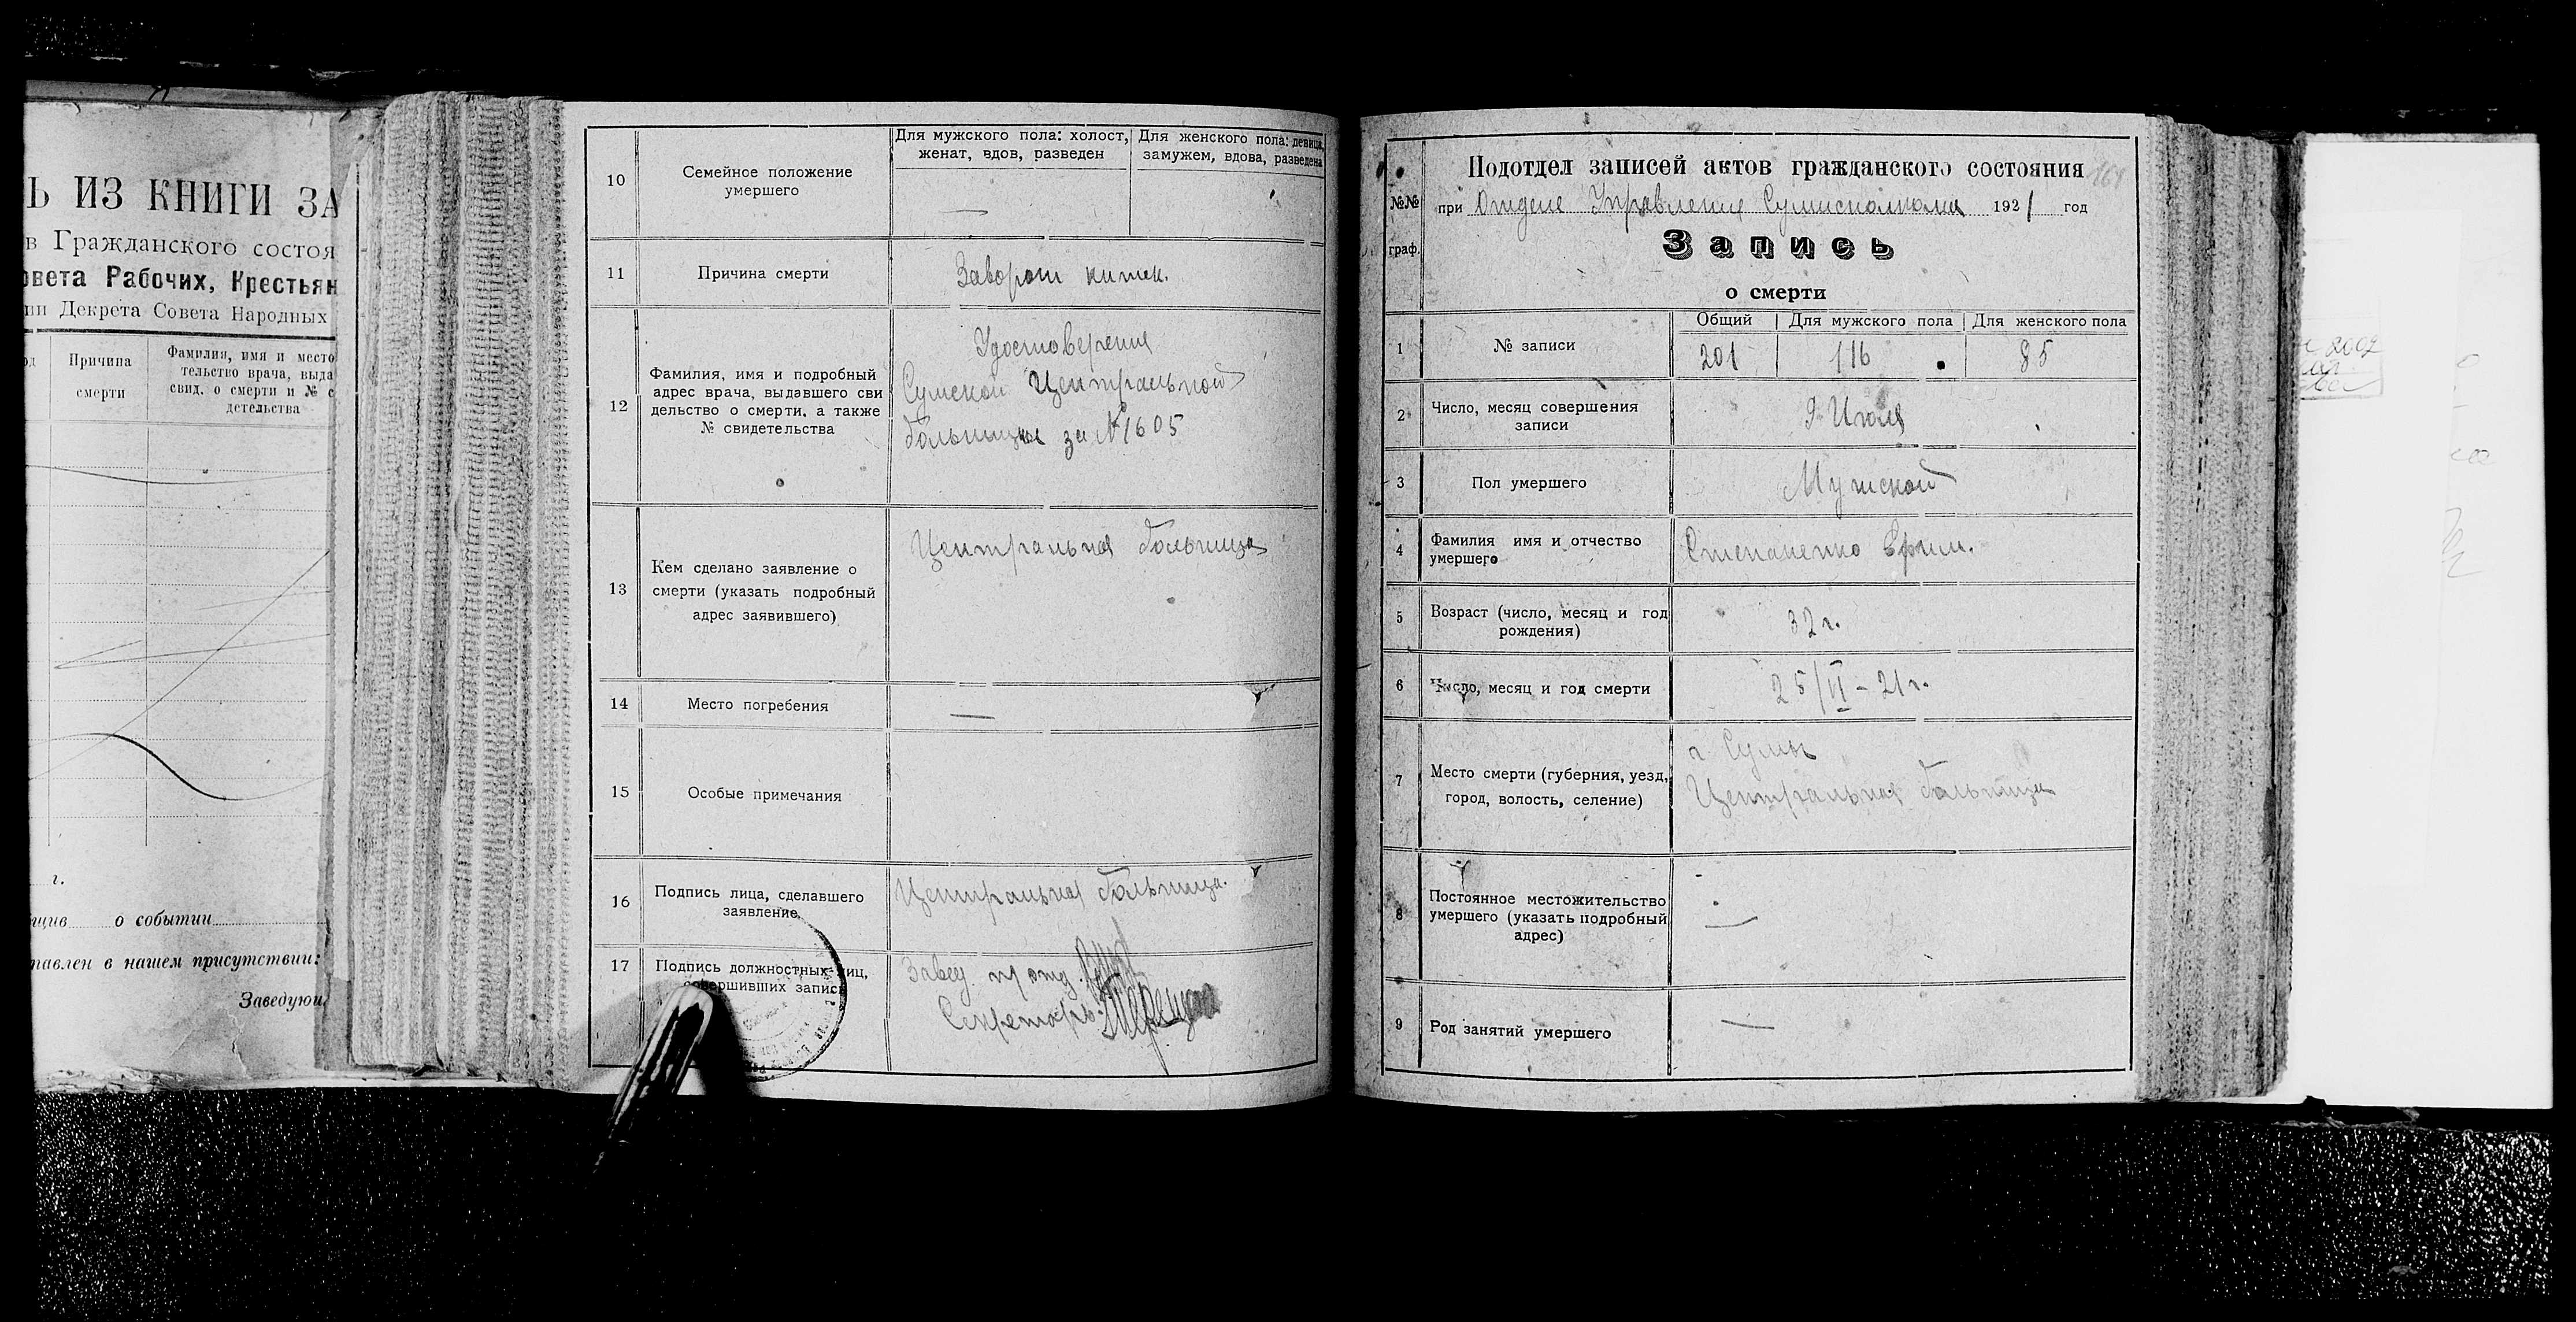 Ь ИЗ КНИГИ ЗА
в Гражданского состоя
овета Рабочих, Крестьян
ии Декрета Совета Народных
Причина смерти
Фамилия, имя и место
тельство врача, выда
свид. о смерти и № с
детельства
г.
о событии
тавлен в нашем присутствии:
Заведующ
10
Семейное положение
умершего
Для мужского пола: холост,
женат, вдов, разведен
Для женского пола: девица,
замужем, вдова, разведена
—
11
Причина смерти
Заворот кишек.
12
Фамилия, имя и подробный
адрес врача, выдавшего сви
дельство о смерти, а также
№ свидетельства
Удостоверение
Сумской Центральной
больницы за №1605
13
Кем сделано заявление о
смерти (указать подробный
адрес заявившего)
Центральная больница
14
Место погребения
—
15
Особые примечания
16
Подпись лица, сделавшего
заявление
Центральная больница.
17
Подпись должностных лиц,
совершивших запись
Завед. п/отд.
Секретарь
№№
граф.
Подотдел записей актов гражданского состояния
при Отделе Управления Сумисполкома 1921 год
Запись
о смерти
1
№ записи
Общий
Для мужского пола
Для женского пола
201
116
85
2
Число, месяц совершения
записи
9 Июля
3
Пол умершего
Мужской
4
Фамилия имя и отчество
умершего
Степаненко Ефим.
5
Возраст (число, месяц и год
рождения)
32 г.
6
Число, месяц и год смерти
25/VI – 21 г.
7
Место смерти (губерния, уезд,
город, волость, селение)
г. Сумы
Центральная больница
8
Постоянное местожительство
умершего (указать подробный
адрес)
—
9
Род занятий умершего
—
2002